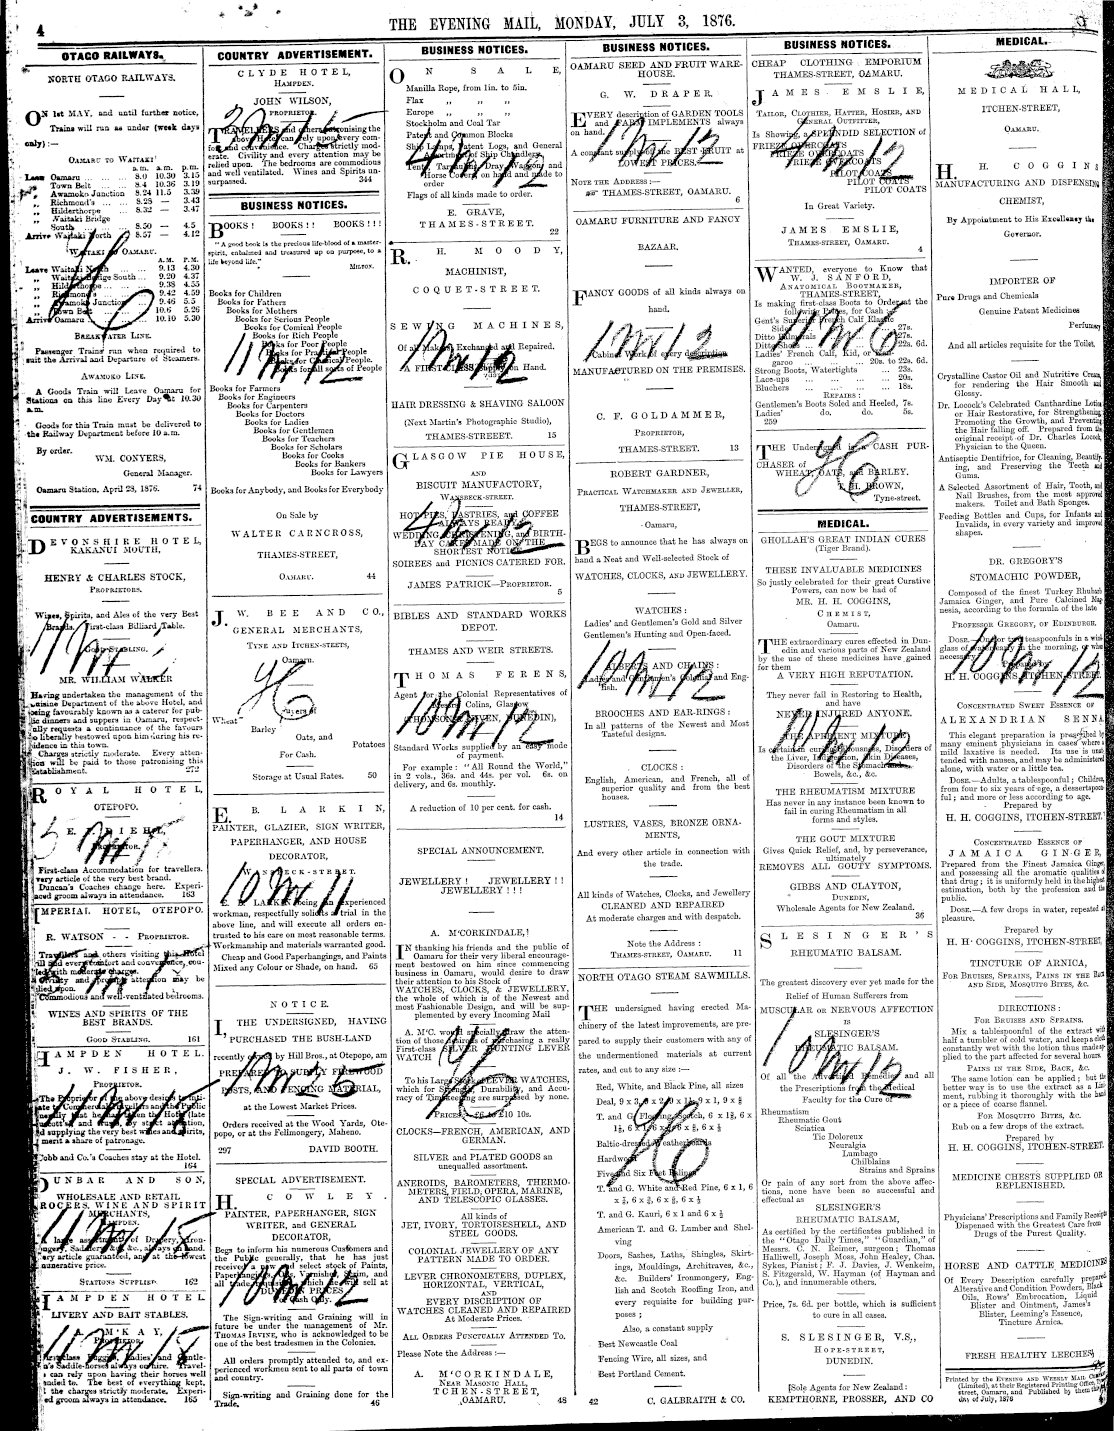 4
THE EVENING MAIL, MONDAY, JULY 3, 1876.
OTAGO RAILWAYS.
NORTH OTAGO RAILWAYS.
ON 1st MAY, and until further notice,
Trains will run as under (week days
only):—
OAMARU TO WAITAKI
a.m. a.m. p.m.
Leave Oamaru 8.0 10.30 3.15
" Town Belt 8.4 10.36 3.19
" Awamoko Junction 8.24 11.5 3.39
" Richmond's 8.28 — 3.43
" Hilderthorpe 8.32 — 3.47
" Waitaki Bridge
South 8.50 — 4.5
Arrive Waitaki North 8.57 — 4.12
WAITAKI TO OAMARU.
A.M. P.M.
Leave Waitaki North 9.13 4.30
" Waitaki Bridge South 9.20 4.37
" Hilderthorpe 9.38 4.55
" Richmond's 9.42 4.59
" Awamoko Junction 9.46 5.5
" Town Belt 10.6 5.26
Arrive Oamaru 10.10 5.30
BREAKWATER LINE.
Passenger Trains run when required to
suit the Arrival and Departure of Steamers.
AWAMOKO LINE.
A Goods Train will Leave Oamaru for
Stations on this line Every Day at 10.30
a.m.
Goods for this Train must be delivered to
the Railway Department before 10 a.m.
By order.
WM. CONYERS,
General Manager.
Oamaru Station, April 28, 1876. 74
COUNTRY ADVERTISEMENTS.
DEVONSHIRE HOTEL,
KAKANUI MOUTH,
HENRY & CHARLES STOCK,
PROPRIETORS.
Wines, Spirits, and Ales of the very Best
Brands. First-class Billiard Table.
GOOD STABLING.
MR. WILLIAM WALKER
Having undertaken the management of the
Cuisine Department of the above Hotel, and
being favourably known as a caterer for pub-
lic dinners and suppers in Oamaru, respect-
ully requests a continuance of the favours
o liberally bestowed upon him during his re-
idence in this town.
Charges strictly moderate. Every atten-
tion will be paid to those patronising this
Establishment. 272
ROYAL HOTEL,
OTEPOPO.
E. DIEHL,
PROPRIETOR.
First-class Accommodation for travellers.
very article of the very best brand.
Duncan's Coaches change here. Experi-
nced groom always in attendance. 163
IMPERIAL HOTEL, OTEPOPO.
R. WATSON - - - PROPRIETOR.
Travellers and others visiting this Hotel
ill find every comfort and convenience, cou-
led with moderate charges.
Civility and prompt attention may be
lied upon.
Commodious and well-ventilated bedrooms.
WINES AND SPIRITS OF THE
BEST BRANDS.
GOOD STABLING. 161
HAMPDEN HOTEL.
J. W. FISHER,
PROPRIETOR.
d supplying the very best wines and spirits,
merit a share of patronage.
Cobb and Co.'s Coaches stay at the Hotel.
164
DUNBAR AND SON,
WHOLESALE AND RETAIL
GROCERS, WINE AND SPIRIT
MERCHANTS,
HAMPDEN.
STATIONS SUPPLIED. 162
HAMPDEN HOTEL
LIVERY AND BAIT STABLES.
A. M'KAY,
PROPRIETOR.
First-class Buggies, Ladies' and Gentle-
n's Saddle-horses always on hire. Travel-
s can rely upon having their horses well
ended to. The best of everything kept,
l the charges strictly moderate. Experi-
ed groom always in attendance. 165
COUNTRY ADVERTISEMENT.
CLYDE HOTEL,
HAMPDEN.
JOHN WILSON,
PROPRIETOR.
TRAVELLERS and others patronising the
above Hotel can rely upon every com-
fort and convenience. Charges strictly mod-
erate. Civility and every attention may be
relied upon. The bedrooms are commodious
and well ventilated. Wines and Spirits un-
surpassed. 344
BUSINESS NOTICES.
BOOKS! BOOKS!! BOOKS!!!
"A good book is the precious life-blood of a master-
spirit, embalmed and treasured up on purpose, to a
life beyond life."
MILTON.
Books for Children
Books for Fathers
Books for Mothers
Books for Serious People
Books for Comical People
Books for Rich People
Books for Poor People
Books for Practical People
Books for Classical People.
Books for all sorts of People
Books for Farmers
Books for Engineers
Books for Carpenters
Books for Doctors
Books for Ladies
Books for Gentlemen
Books for Teachers
Books for Scholars
Books for Cooks
Books for Bankers
Books for Lawyers
Books for Anybody, and Books for Everybody
On Sale by
WALTER CARNCROSS,
THAMES-STREET,
OAMARU. 44
J. W. BEE AND CO.,
GENERAL MERCHANTS,
TYNE AND ITCHEN-STEETS,
Oamaru.
Buyers of
Wheat
Barley
Oats, and
Potatoes
For Cash.
Storage at Usual Rates. 50
E. B. LARKIN,
PAINTER, GLAZIER, SIGN WRITER,
PAPERHANGER, AND HOUSE
DECORATOR,
WANSBECK-STREET.
E. B. LARKIN being an experienced
workman, respectfully solicits a trial in the
above line, and will execute all orders en-
trusted to his care on most reasonable terms.
Workmanship and materials warranted good.
Cheap and Good Paperhangings, and Paints
Mixed any Colour or Shade, on hand. 65
NOTICE.
I, THE UNDERSIGNED, HAVING
PURCHASED THE BUSH-LAND
recently owned by Hill Bros., at Otepopo, am
PREPARED to SUPPLY FIREWOOD
POSTS, AND FENCING MATERIAL,
at the Lowest Market Prices.
Orders received at the Wood Yards, Ote-
popo, or at the Fellmongery, Maheno.
297 DAVID BOOTH.
SPECIAL ADVERTISEMENT.
H. COWLEY.
PAINTER, PAPERHANGER, SIGN
WRITER, and GENERAL
DECORATOR,
Begs to inform his numerous Customers and
the Public generally, that he has just
received a new and select stock of Paints,
DUNEDIN PRICES
for Cash only.
The Sign-writing and Graining will in
future be under the management of Mr.
THOMAS IRVINE, who is acknowledged to be
one of the best tradesmen in the Colonies.
All orders promptly attended to, and ex-
perienced workmen sent to all parts of town
and country.
Sign-writing and Graining done for the
Trade. 46
BUSINESS NOTICES.
ON SALE,
Manilla Rope, from 1in. to 5in.
Flax " " "
Europe " " "
Stockholm and Coal Tar
Patent and Common Blocks
Ship Lamps, Patent Logs, and General
Assortment of Ship Chandlery
Tents, Tarpaulins, Dray, Waggon, and
Horse Covers on hand and made to
order
Flags of all kinds made to order.
E. GRAVE,
THAMES-STREET.
22
R. H. MOODY,
MACHINIST,
COQUET-STREET.
SEWING MACHINES,
Of all Makers Exchanged and Repaired.
A FIRST-CLASS Supply on Hand.
HAIR DRESSING & SHAVING SALOON
(Next Martin's Photographic Studio),
THAMES-STREEET. 15
GLASGOW PIE HOUSE,
AND
BISCUIT MANUFACTORY,
WANSBECK-STREET.
HOT PIES, PASTRIES, and COFFEE
ALWAYS READY.
WEDDING, CHRISTENING, and BIRTH-
DAY CAKES MADE ON THE
SHORTEST NOTICE
SOIREES and PICNICS CATERED FOR.
JAMES PATRICK—PROPRIETOR.
5
BIBLES AND STANDARD WORKS
DEPOT.
THAMES AND WEIR STREETS.
THOMAS FERENS,
Agent for the Colonial Representatives of
Messrs Colins, Glasgow
(THOMSON & NIVEN, DUNEDIN),
Standard Works supplied by an easy mode
of payment.
For example: "All Round the World,"
in 2 vols., 36s. and 44s. per vol. 6s. on
delivery, and 6s. monthly.
A reduction of 10 per cent. for cash.
14
SPECIAL ANNOUNCEMENT.
JEWELLERY! JEWELLERY!!
JEWELLERY!!!
A. M'CORKINDALE,!
IN thanking his friends and the public of
Oamaru for their very liberal encourage-
ment bestowed on him since commencing
business in Oamaru, would desire to draw
their attention to his Stock of
WATCHES, CLOCKS, & JEWELLERY,
the whole of which is of the Newest and
most Fashionable Design, and will be sup-
plemented by every Incoming Mail
A. M'C. would specially draw the atten-
tion of those desirous of purchasing a really
First-class SILVER HUNTING LEVER
WATCH
To his Large Stock of LEVER WATCHES,
which for Strength, Durability, and Accu-
racy of Timekeeping are surpassed by none.
PRICES—£6 to £10 10s.
CLOCKS—FRENCH, AMERICAN, AND
GERMAN.
SILVER and PLATED GOODS an
unequalled assortment.
ANEROIDS, BAROMETERS, THERMO-
METERS, FIELD, OPERA, MARINE,
AND TELESCOPIC GLASSES.
All kinds of
JET, IVORY, TORTOISESHELL, AND
STEEL GOODS.
COLONIAL JEWELLERY OF ANY
PATTERN MADE TO ORDER.
LEVER CHRONOMETERS, DUPLEX,
HORIZONTAL, VERTICAL,
AND
EVERY DISCRIPTION OF
WATCHES CLEANED AND REPAIRED
At Moderate Prices.
ALL ORDERS PUNCTUALLY ATTENDED TO.
Please Note the Address:—
A. M'CORKINDALE,
NEAR MASONIC HALL,
TCHEN-STREET,
OAMARU. 48
BUSINESS NOTICES.
OAMARU SEED AND FRUIT WARE-
HOUSE.
G. W. DRAPER.
EVERY description of GARDEN TOOLS
and FARM IMPLEMENTS always
on hand.
A constant supply of the BEST FRUIT at
LOWEST PRICES.
NOTE THE ADDRESS:—
THAMES-STREET, OAMARU.
6
OAMARU FURNITURE AND FANCY
BAZAAR.
FANCY GOODS of all kinds always on
hand.
Cabinet Work of every description
MANUFACTURED ON THE PREMISES.
C. F. GOLDAMMER,
PROPRIETOR,
THAMES-STREET. 13
ROBERT GARDNER,
PRACTICAL WATCHMAKER AND JEWELLER,
THAMES-STREET,
Oamaru,
BEGS to announce that he has always on
hand a Neat and Well-selected Stock of
WATCHES, CLOCKS, AND JEWELLERY.
WATCHES:
Ladies' and Gentlemen's Gold and Silver
Gentlemen's Hunting and Open-faced.
ALBERTS AND CHAINS:
Ladies and Gentlemen's Colonial and Eng-
lish.
BROOCHES AND EAR-RINGS:
In all patterns of the Newest and Most
Tasteful designs.
CLOCKS:
English, American, and French, all of
superior quality and from the best
houses.
LUSTRES, VASES, BRONZE ORNA-
MENTS,
And every other article in connection with
the trade.
All kinds of Watches, Clocks, and Jewellery
CLEANED AND REPAIRED
At moderate charges and with despatch.
Note the Address:
THAMES-STREET, OAMARU. 11
NORTH OTAGO STEAM SAWMILLS.
THE undersigned having erected Ma-
chinery of the latest improvements, are pre-
pared to supply their customers with any of
the undermentioned materials at current
rates, and cut to any size:—
Red, White, and Black Pine, all sizes
Baltic-dressed Weatherboards
Hardwood
Five and Six Feet Palings
T. and G. White and Red Pine, 6 x 1, 6
T. and G. Kauri, 6 x 1 and 6 x ½
American T. and G. Lumber and Shel-
ving
Doors, Sashes, Laths, Shingles, Skirt-
ings, Mouldings, Architraves, &c.,
&c. Builders' Ironmongery, Eng-
lish and Scotch Roofling Iron, and
every requisite for building pur-
poses;
Also, a constant supply
Best Newcastle Coal
Fencing Wire, all sizes, and
Best Portland Cement.
42 C. GALBRAITH & CO.
BUSINESS NOTICES.
CHEAP CLOTHING EMPORIUM
THAMES-STREET, OAMARU.
JAMES EMSLIE,
TAILOR, CLOTHIER, HATTER, HOSIER, AND
GENERAL OUTFITTER,
Is Showing a SPLENDID SELECTION of
FRIEZE OVERCOATS
FRIEZE OVERCOATS
FRIEZE OVERCOATS
PILOT COATS
PILOT COATS
PILOT COATS
In Great Variety.
JAMES EMSLIE,
THAMES-STREET, OAMARU.
4
WANTED, everyone to Know that
W. J. SANFORD,
ANATOMICAL BOOTMAKER,
THAMES-STREET,
Is making first-class Boots to Order at the
following Prices, for Cash:—
Gent's Superior French Calf Elastic
Sides 27s.
Ditto Balmorals 27s.
22s. 6d.
Ladies' French Calf, Kid, or Kan-
garoo 20s. to 22s. 6d.
Strong Boots, Watertights 23s.
Lace-ups 20s.
Bluchers 18s.
REPAIRS:
Gentlemen's Boots Soled and Heeled, 7s.
Ladies' do. do. 5s.
259
THE Undersigned is a CASH PUR-
CHASER of
WHEAT, OATS, and BARLEY.
T. H. BROWN,
Tyne-street.
MEDICAL.
GHOLLAH'S GREAT INDIAN CURES
(Tiger Brand).
THESE INVALUABLE MEDICINES
So justly celebrated for their great Curative
Powers, can now be had of
MR. H. H. COGGINS,
CHEMIST,
Oamaru.
THE extraordinary cures effected in Dun-
edin and various parts of New Zealand
by the use of these medicines have gained
for them
A VERY HIGH REPUTATION.
They never fail in Restoring to Health,
and have
NEVER INJURED ANYONE.
THE APERIENT MIXTURE
Is certain in curing Indigestion, Disorders of
the Liver, Influenza, Skin Diseases,
Disorders of the Stomach and
Bowels, &c., &c.
THE RHEUMATISM MIXTURE
Has never in any instance been known to
fail in curing Rheumatism in all
forms and styles.
THE GOUT MIXTURE
Gives Quick Relief, and, by perseverance,
ultimately
REMOVES ALL GOUTY SYMPTOMS.
GIBBS AND CLAYTON,
DUNEDIN,
Wholesale Agents for New Zealand.
36
SLESINGER'S
RHEUMATIC BALSAM.
The greatest discovery ever yet made for the
Relief of Human Sufferers from
MUSCULAR or NERVOUS AFFECTION
IS
SLESINGER'S
RHEUMATIC BALSAM.
Of all the Advertised Remedies and all
the Prescriptions from the Medical
Faculty for the Cure of
Rheumatism
Rheumatic Gout
Sciatica
Tic Doloreux
Neuralgia
Lumbago
Chilblains
Strains and Sprains
Or pain of any sort from the above affec-
tions, none have been so successful and
effectual as
SLESINGER'S
RHEUMATIC BALSAM,
As certified by the certificates published in
the "Otago Daily Times," "Guardian," of
Messrs. C. N. Reimer, surgeon; Thomas
Halliwell, Joseph Moss, John Healey, Chas.
Sykes, Pianist; F. J. Davies, J. Wenkeim,
S. Fitzgerald, W. Hayman (of Hayman and
Co.), and innumerable others.
Price, 7s. 6d. per bottle, which is sufficient
to cure in all cases.
S. SLESINGER, V.S.,
HOPE-STREET,
DUNEDIN.
Sole Agents for New Zealand:
KEMPTHORNE, PROSSER, AND CO
MEDICAL.
MEDICAL HALL,
ITCHEN-STREET,
OAMARU.
H. H. COGGINS
MANUFACTURING AND DISPENSING
CHEMIST,
By Appointment to His Excellency the
Governor.
IMPORTER OF
Pure Drugs and Chemicals
Genuine Patent Medicines
Perfumery
And all articles requisite for the Toilet.
Crystalline Castor Oil and Nutritive Cream,
for rendering the Hair Smooth and
Glossy.
Dr. Locock's Celebrated Canthardine Lotion
or Hair Restorative, for Strengthening
Promoting the Growth, and Preventing
the Hair falling off. Prepared from the
original receipt of Dr. Charles Locock,
Physician to the Queen.
Antiseptic Dentifrice, for Cleaning, Beautify-
ing, and Preserving the Teeth and
Gums.
A Selected Assortment of Hair, Tooth, and
Nail Brushes, from the most approved
makers. Toilet and Bath Sponges.
Feeding Bottles and Cups, for Infants and
Invalids, in every variety and improved
shapes.
DR. GREGORY'S
STOMACHIC POWDER,
Composed of the finest Turkey Rhubarb
Jamaica Ginger, and Pure Calcined Mag-
nesia, according to the formula of the late
PROFESSOR GREGORY, OF EDINBURGH.
DOSE.—One or two teaspoonfuls in a wine
glass of water early in the morning, or when
necessary.
Prepared by
H. H. COGGINS, ITCHEN-STREET.
CONCENTRATED SWEET ESSENCE OF
ALEXANDRIAN SENNA.
This elegant preparation is prescribed by
many eminent physicians in cases where a
mild laxative is needed. Its use is unat-
tended with nausea, and may be administered
alone, with water or a little tea.
DOSE.—Adults, a tablespoonful; Children,
from four to six years of age, a dessertspoon-
ful; and more or less according to age.
Prepared by
H. H. COGGINS, ITCHEN-STREET.
CONCENTRATED ESSENCE OF
JAMAICA GINGER,
Prepared from the Finest Jamaica Ginger,
and possessing all the aromatic qualities of
that drug; it is uniformly held in the highest
estimation, both by the profession and the
public.
DOSE.—A few drops in water, repeated at
pleasure.
Prepared by
H. H. COGGINS, ITCHEN-STREET,
TINCTURE OF ARNICA,
FOR BRUISES, SPRAINS, PAINS IN THE BACK
AND SIDE, MOSQUITO BITES, &c.
DIRECTIONS:
FOR BRUISES AND SPRAINS.
Mix a tablespoonful of the extract with
half a tumbler of cold water, and keep a cloth
constantly wet with the lotion thus made ap-
plied to the part affected for several hours.
PAINS IN THE SIDE, BACK, &c.
The same lotion can be applied; but the
better way is to use the extract as a Lini-
ment, rubbing it thoroughly with the hand
or a piece of coarse flannel.
FOR MOSQUITO BITES, &c.
Rub on a few drops of the extract.
Prepared by
H. H. COGGINS, ITCHEN-STREET.
MEDICINE CHESTS SUPPLIED OR
REPLENISHED.
Physicians' Prescriptions and Family Receipts
Dispensed with the Greatest Care from
Drugs of the Purest Quality.
HORSE AND CATTLE MEDICINES
Of Every Description carefully prepared
Alterative and Condition Powders, Black
Oils, Rowe's Embrocation, Liquid
Blister and Ointment, James's
Blister, Leeming's Essence,
Tincture Arnica.
FRESH HEALTHY LEECHES
Printed by the EVENING AND WEEKLY MAIL Company
(Limited), at their Registered Printing Office,
street, Oamaru, and Published by them
day of July, 1876